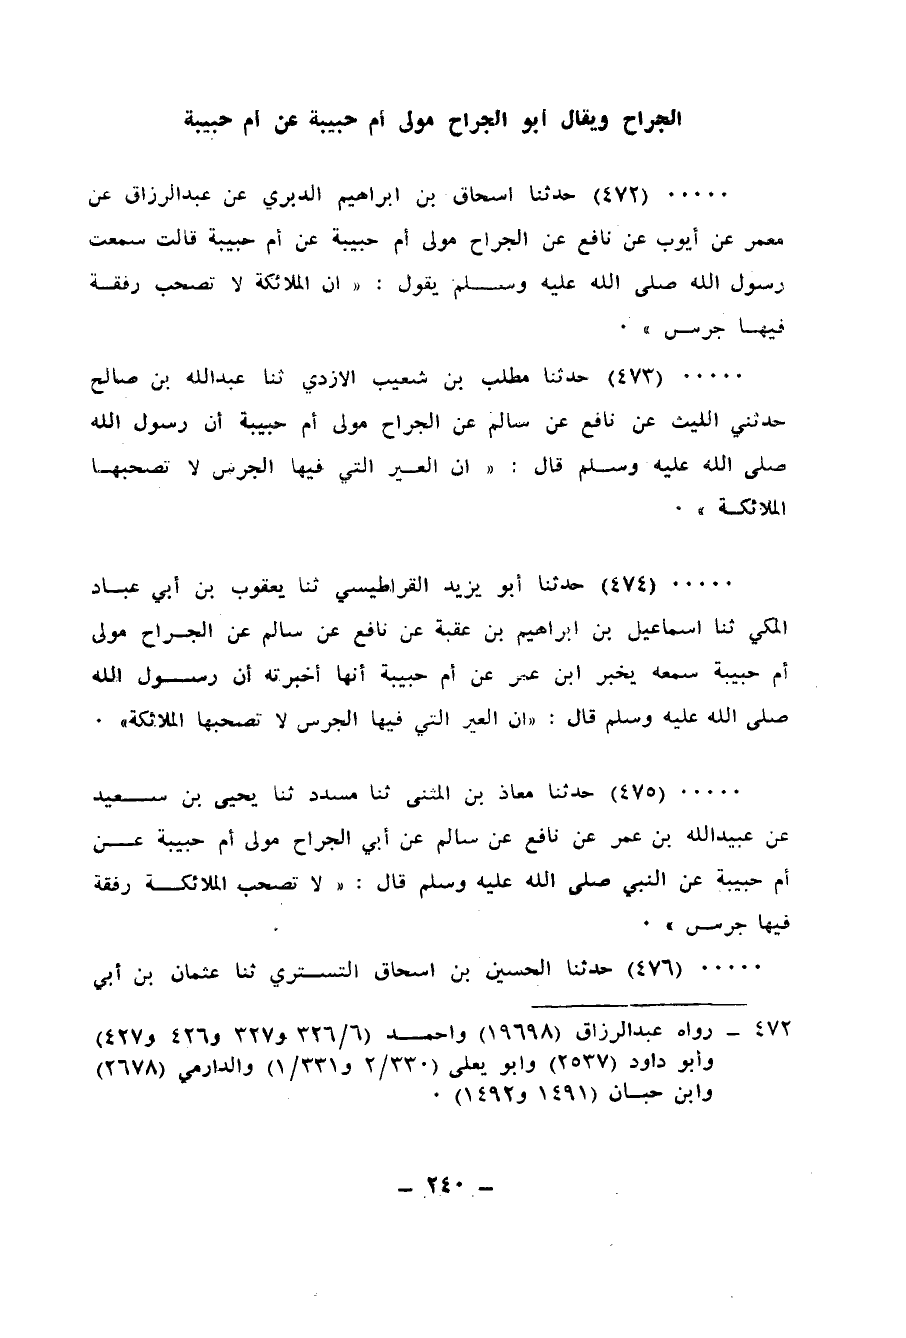 الجراح ويقال أبو الجراح مولى أم حبيبة عن أم حبيبة
٠٠٠٠٠ (٤٧٢) حدثنا اسحاق بن ابراهيم الدبري عن عبدالرزاق عن
معمر عن أيوب عن نافع عن الجراح مولى أم حبيبة عن أم حبيبة قالت سمعت
رسول الله صلى الله عليه وسلم يقول : « ان الملائكة لا تصحب رفقة
فيها جرس » ٠
٠٠٠٠٠ (٤٧٣) حدثنا مطلب بن شعيب الازدي ثنا عبدالله بن صالح
حدثني الليث عن نافع عن سالم عن الجراح مولى أم حبيبة أن رسول الله
صلى الله عليه وسلم قال : « ان العير التي فيها الجرس لا تصحبها
الملائكة » ٠
٠٠٠٠٠ (٤٧٤) حدثنا أبو يزيد القراطيسي ثنا يعقوب بن أبي عباد
المكي ثنا اسماعيل بن ابراهيم بن عقبة عن نافع عن سالم عن الجراح مولى
أم حبيبة سمعه يخبر ابن عمر عن أم حبيبة أنها أخبرته أن رسول الله
صلى الله عليه وسلم قال : «ان العير التي فيها الجرس لا تصحبها الملائكة» ٠
٠٠٠٠٠ (٤٧٥) حدثنا معاذ بن المثنى ثنا مسدد ثنا يحيى بن سعيد
عن عبيدالله بن عمر عن نافع عن سالم عن أبي الجراح مولى أم حبيبة عن
أم حبيبة عن النبي صلى الله عليه وسلم قال : « لا تصحب الملائكة رفقة
فيها جرس » ٠
٠٠٠٠٠ (٤٧٦) حدثنا الحسين بن اسحاق التستري ثنا عثمان بن أبي
٤٧٢ – رواه عبدالرزاق (١٩٦٩٨) واحمد (٣٢٦/٦ و٣٢٧ و٤٢٦ و٤٢٧)
وأبو داود (٢٥٣٧) وابو يعلى (٢/٣٣٠ و١/٣٣١) والدارمي (٢٦٧٨)
وابن حبان (١٤٩١ و١٤٩٢) ٠
– ٢٤٠ –